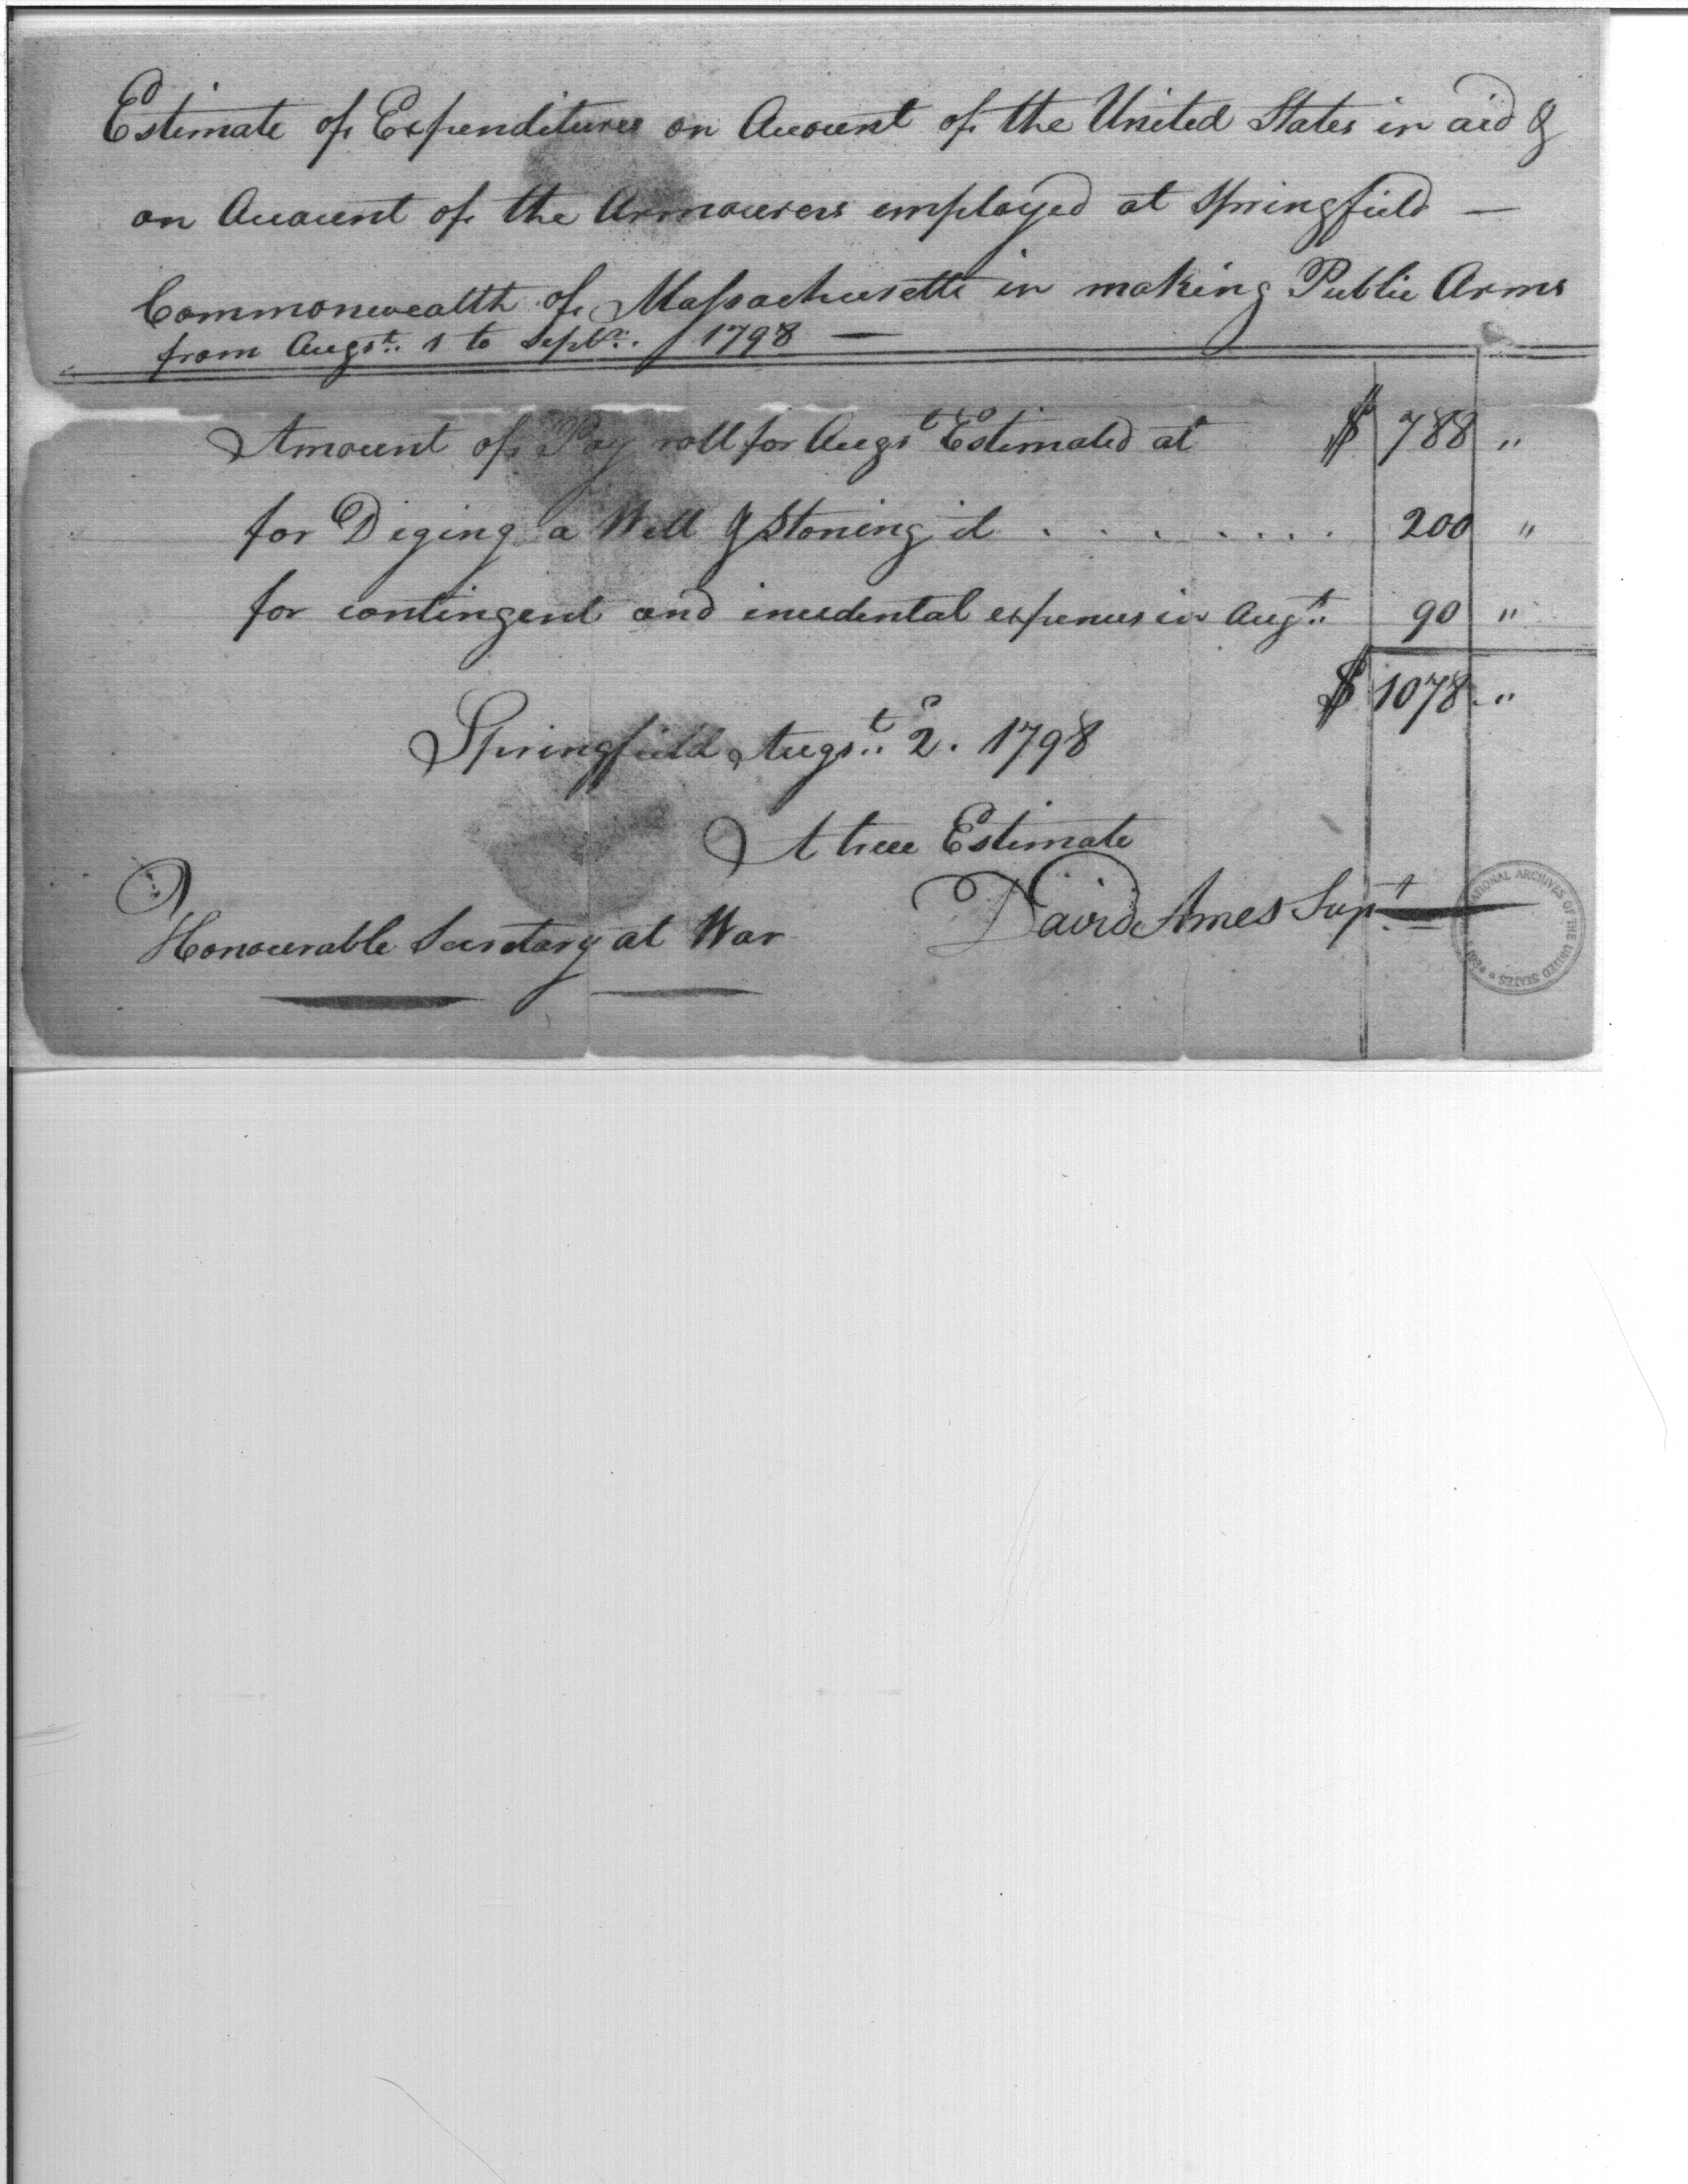 Estimate of Expenditures on Account of the United States in aid &
on Account of the Armourers employed at Springfield —
Commonwealth of Massachusetts in making Public Arms
from Augst. 1 to Septr. 1 1798 —
Amount of Pay roll for Augst Estimated at $ 788 "
for Diging a Well & Stoning it . . . . . . . 200 "
for contingent and incedental expences in Augt. 90 "
$ 1078 "
Springfield Augst. 2. 1798
A true Estimate
David Ames Supt
Honourable Secretary at War
NATIONAL ARCHIVES OF THE UNITED STATES